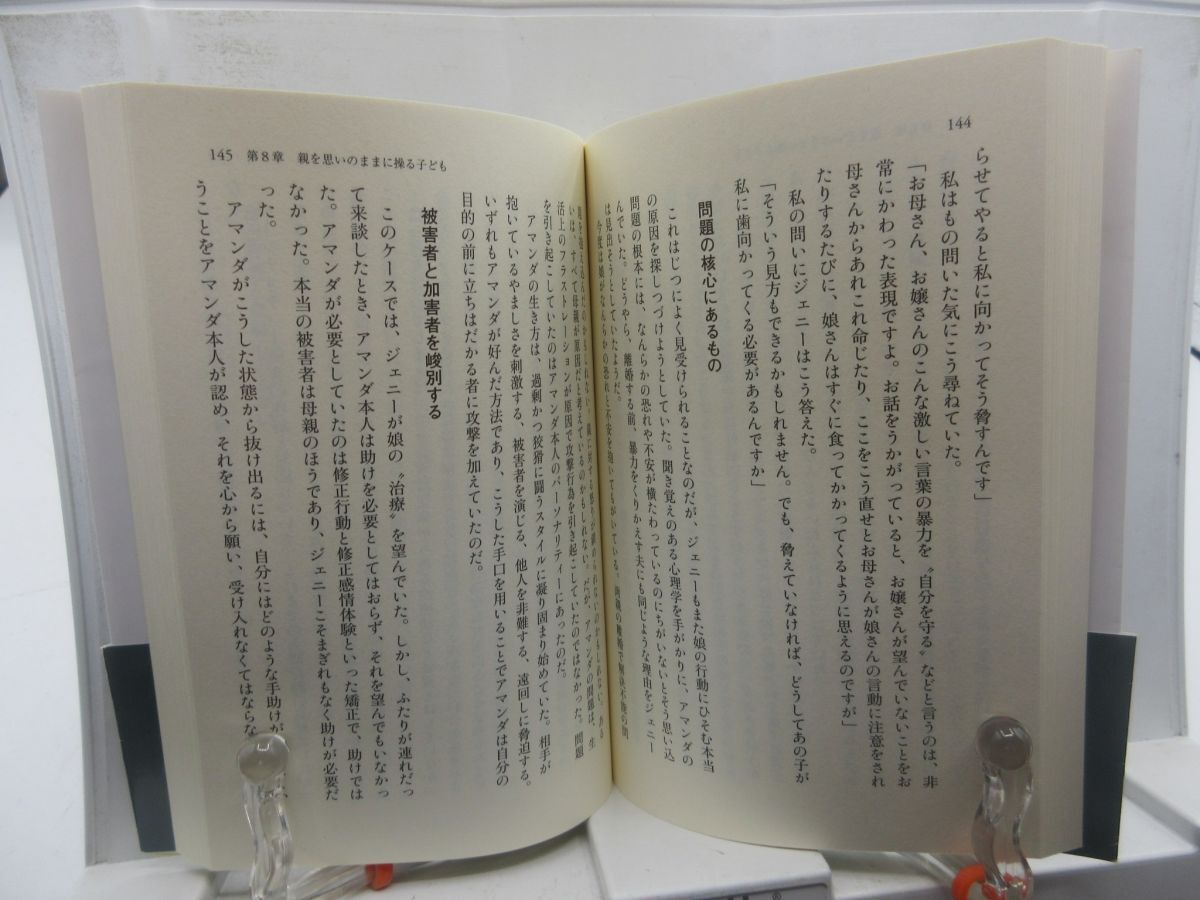 144
らせてやると私に向かってそう脅すんです」
私はもの問いた気にこう尋ねていた。
「お母さん、お嬢さんのこんな激しい言葉の暴力を〝自分を守る〟などと言うのは、非
常にかわった表現ですよ。お話をうかがっていると、お嬢さんが望んでいないことをお
母さんからあれこれ命じたり、ここをこう直せとお母さんが娘さんの言動に注意をされ
たりするたびに、娘さんはすぐに食ってかかってくるように思えるのですが」
私の問いにジェニーはこう答えた。
「そういう見方もできるかもしれません。でも、脅えていなければ、どうしてあの子が
私に歯向かってくる必要があるんですか」
問題の核心にあるもの
これはじつによく見受けられることなのだが、ジェニーもまた娘の行動にひそむ本当
の原因を探しつづけようとしていた。聞き覚えのある心理学を手がかりに、アマンダの
問題の根本には、なんらかの恐れや不安が横たわっているのにちがいないとそう思い込
んでいた。どうやら、離婚する前、暴力をくりかえす夫にも同じような理由をジェニー
は見出そうとしていたようだ。
今度は娘がなんらかの恐れと不安を抱いてもがいている。両親の離婚で解決不能の問
145 第8章 親を思いのままに操る子ども
いは、すべて母親が原因だと考えているのかもしれない。だが、アマンダの問題は、生
活上のフラストレーションが原因で攻撃行為を引き起こしていたのではなかった。問題
を引き起こしていたのはアマンダ本人のパーソナリティーにあったのだ。
アマンダの生き方は、過剰かつ狡猾に闘うスタイルに凝り固まり始めていた。相手が
抱いているやましさを刺激する、被害者を演じる、他人を非難する、遠回しに脅迫する。
いずれもアマンダが好んだ方法であり、こうした手口を用いることでアマンダは自分の
目的の前に立ちはだかる者に攻撃を加えていたのだ。
被害者と加害者を峻別する
このケースでは、ジェニーが娘の〝治療〟を望んでいた。しかし、ふたりが連れだっ
て来談したとき、アマンダ本人は助けを必要としてはおらず、それを望んでもいなかっ
た。アマンダが必要としていたのは修正行動と修正感情体験といった矯正で、助けでは
なかった。本当の被害者は母親のほうであり、ジェニーこそまぎれもなく助けが必要だ
った。
アマンダがこうした状態から抜け出るには、自分にはどのような手助けが
うことをアマンダ本人が認め、それを心から願い、受け入れなくてはならな